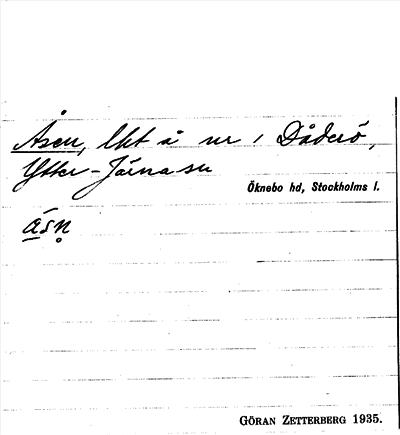 Åsen, lht å nr 1 Dåderö,
Ytter-Järna sn
Öknebo hd, Stockholms l.
åsn̥
GÖRAN ZETTERBERG 1935.